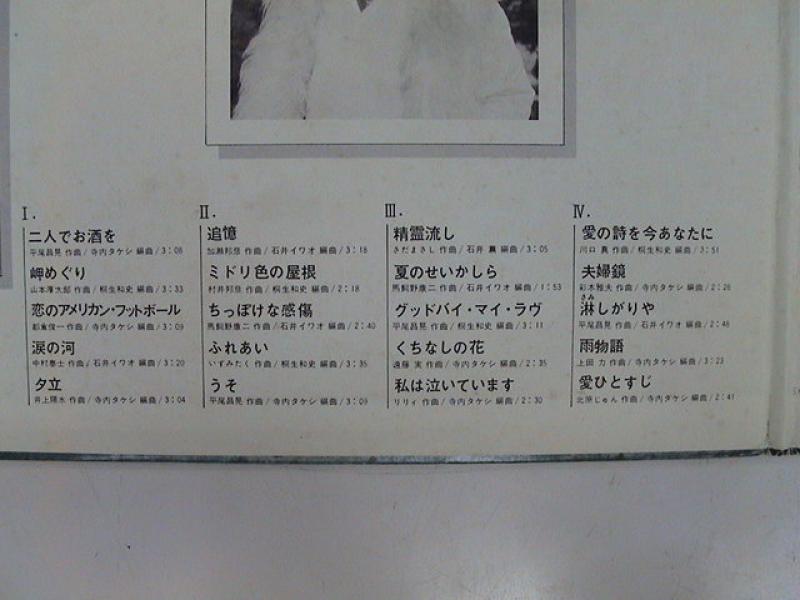 I.
二人でお酒を
平尾昌晃 作曲/寺内タケシ 編曲/3:08
岬めぐり
山本厚太郎 作曲/桐生和史 編曲/3:33
恋のアメリカン・フットボール
都倉俊一 作曲/寺内タケシ 編曲/3:09
涙の河
中村泰士 作曲/石井イワオ 編曲/3:20
夕立
井上陽水 作曲/寺内タケシ 編曲/3:04
II.
追憶
加瀬邦彦 作曲/石井イワオ 編曲/3:18
ミドリ色の屋根
村井邦彦 作曲/桐生和史 編曲/2:18
ちっぽけな感傷
馬飼野康二 作曲/石井イワオ 編曲/2:40
ふれあい
いずみたく 作曲/桐生和史 編曲/3:35
うそ
平尾昌晃 作曲/寺内タケシ 編曲/3:09
III.
精霊流し
さだまさし 作曲/石井 薫 編曲/3:05
夏のせいかしら
馬飼野康二 作曲/石井イワオ 編曲/1:53
グッドバイ・マイ・ラヴ
平尾昌晃 作曲/桐生和史 編曲/3:11
くちなしの花
遠藤 実 作曲/寺内タケシ 編曲/2:35
私は泣いています
リリィ 作曲/寺内タケシ 編曲/2:30
IV.
愛の詩を今あなたに
川口 真 作曲/桐生和史 編曲/3:51
夫婦鏡
彩木雅夫 作曲/寺内タケシ 編曲/2:26
さみ
淋しがりや
平尾昌晃 作曲/石井イワオ 編曲/2:48
雨物語
上田 力 作曲/寺内タケシ 編曲/3:23
愛ひとすじ
北原じゅん 作曲/寺内タケシ 編曲/2:41